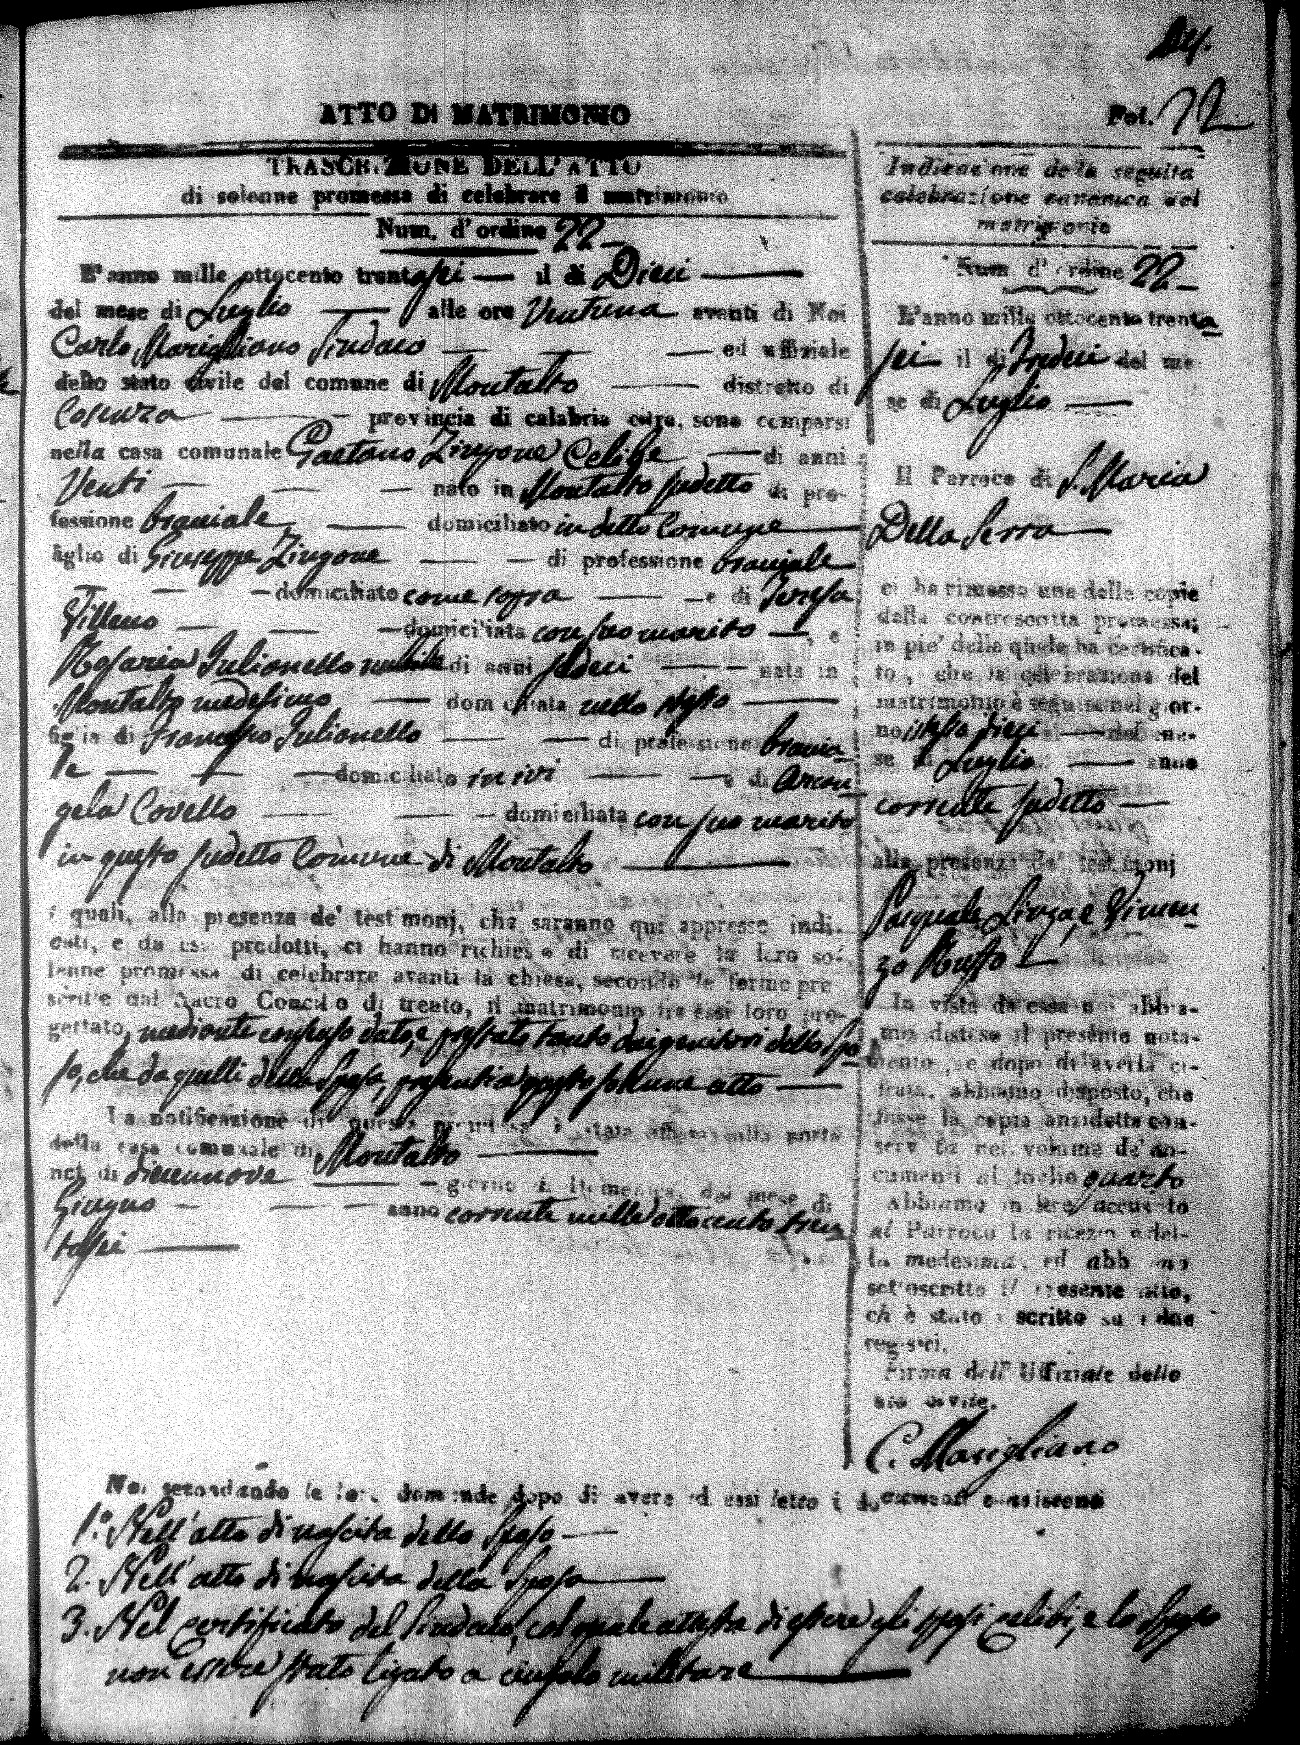 ATTO DI MATRIMONIO
Fol. 72
TRASCRIZIONE DELL'ATTO
di solenne promessa di celebrare il matrimonio
Num. d'ordine 22
L'anno mille ottocento trentasei il di Dieci
del mese di Luglio alle ore Ventuna avanti di Noi
Carlo Marigliano Sindaco ed uffiziale
dello stato civile del comune di Montalto distretto di
Cosenza provincia di calabria citra, sono comparsi
nella casa comunale Gaetano Zingone Celibe di anni
Venti nato in Montalto sudetto di pro-
fessione braciale domiciliato in detto Comune
figlio di Giuseppe Zingone di professione braciale
domiciliato come sopra e di Teresa
domiciliata con suo marito, e
Rosaria Iulionello nubile di anni sedeci nata in
Montalto medesimo domiciliata nello stesso
figlia di Francesco Iulionello di professione bracia
le domiciliato in ivi e di Arcan
gela Covello domiciliata con suo marito
in questo sudetto Comune di Montalto
i quali, alla presenza de' testimonj, che saranno qui appresso indi-
cati, e da essi prodotti, ci hanno richiesto di ricevere la loro so-
lenne promessa di celebrare avanti la chiesa, secondo le forme pre
scritte dal Sacro Concilio di trento, il matrimonio tra essi loro pro-
gettato, mediante consenso dato, e prestato tanto dai genitori dello Spo
so, che da quelli della Sposa, presenti a questo solenne atto
La notificazione di questa promessa è stata affissa sulla porta
della casa comunale di Montalto
nel di diecinnove giorno di Domenica, del mese di
Giugno anno corrente mille ottocento tren
tasei
Noi secondando le loro domande dopo di avere ad essi letto i documenti consistenti
1.° Nell'atto di nascita dello Sposo
2. Nell'atto di nascita della Sposa
3. Nel certificato del Sindaco, col quale attesta di essere gli sposi celibi, e lo Sposo
non essere stato ligato a cingolo militare
Indicazione della seguita
celebrazione canonica del
matrimonio
Num d'ordine 22
L'anno mille ottocento trenta
sei il di Tredeci del me-
se di Luglio
Il Parroco di S. Maria
Della Serra
ci ha rimessa una delle copie
della controscritta promessa;
in piè della quale ha certifica-
to, che la celebrazione del
matrimonio è seguita nel gior-
no istesso dieci del me-
se di Luglio anno
corrente sudetto
alla presenza de' testimonj
Pasquale Linza, e Vincen
zo Ruffo
In vista di essa noi abbia-
mo disteso il presente nota-
mento, e dopo di averla ci-
frata, abbiamo disposto, che
fosse la copia anzidetta con-
servata nel volume de' do-
cumenti al foglio quarto
Abbiamo in oltre accusato
al Parroco la ricezione del-
la medesima, ed abbiamo
sottoscritto il presente atto,
ch'è stato iscritto su i due
registri.
Firma dell'Uffiziale dello
stato civile.
C. Marigliano